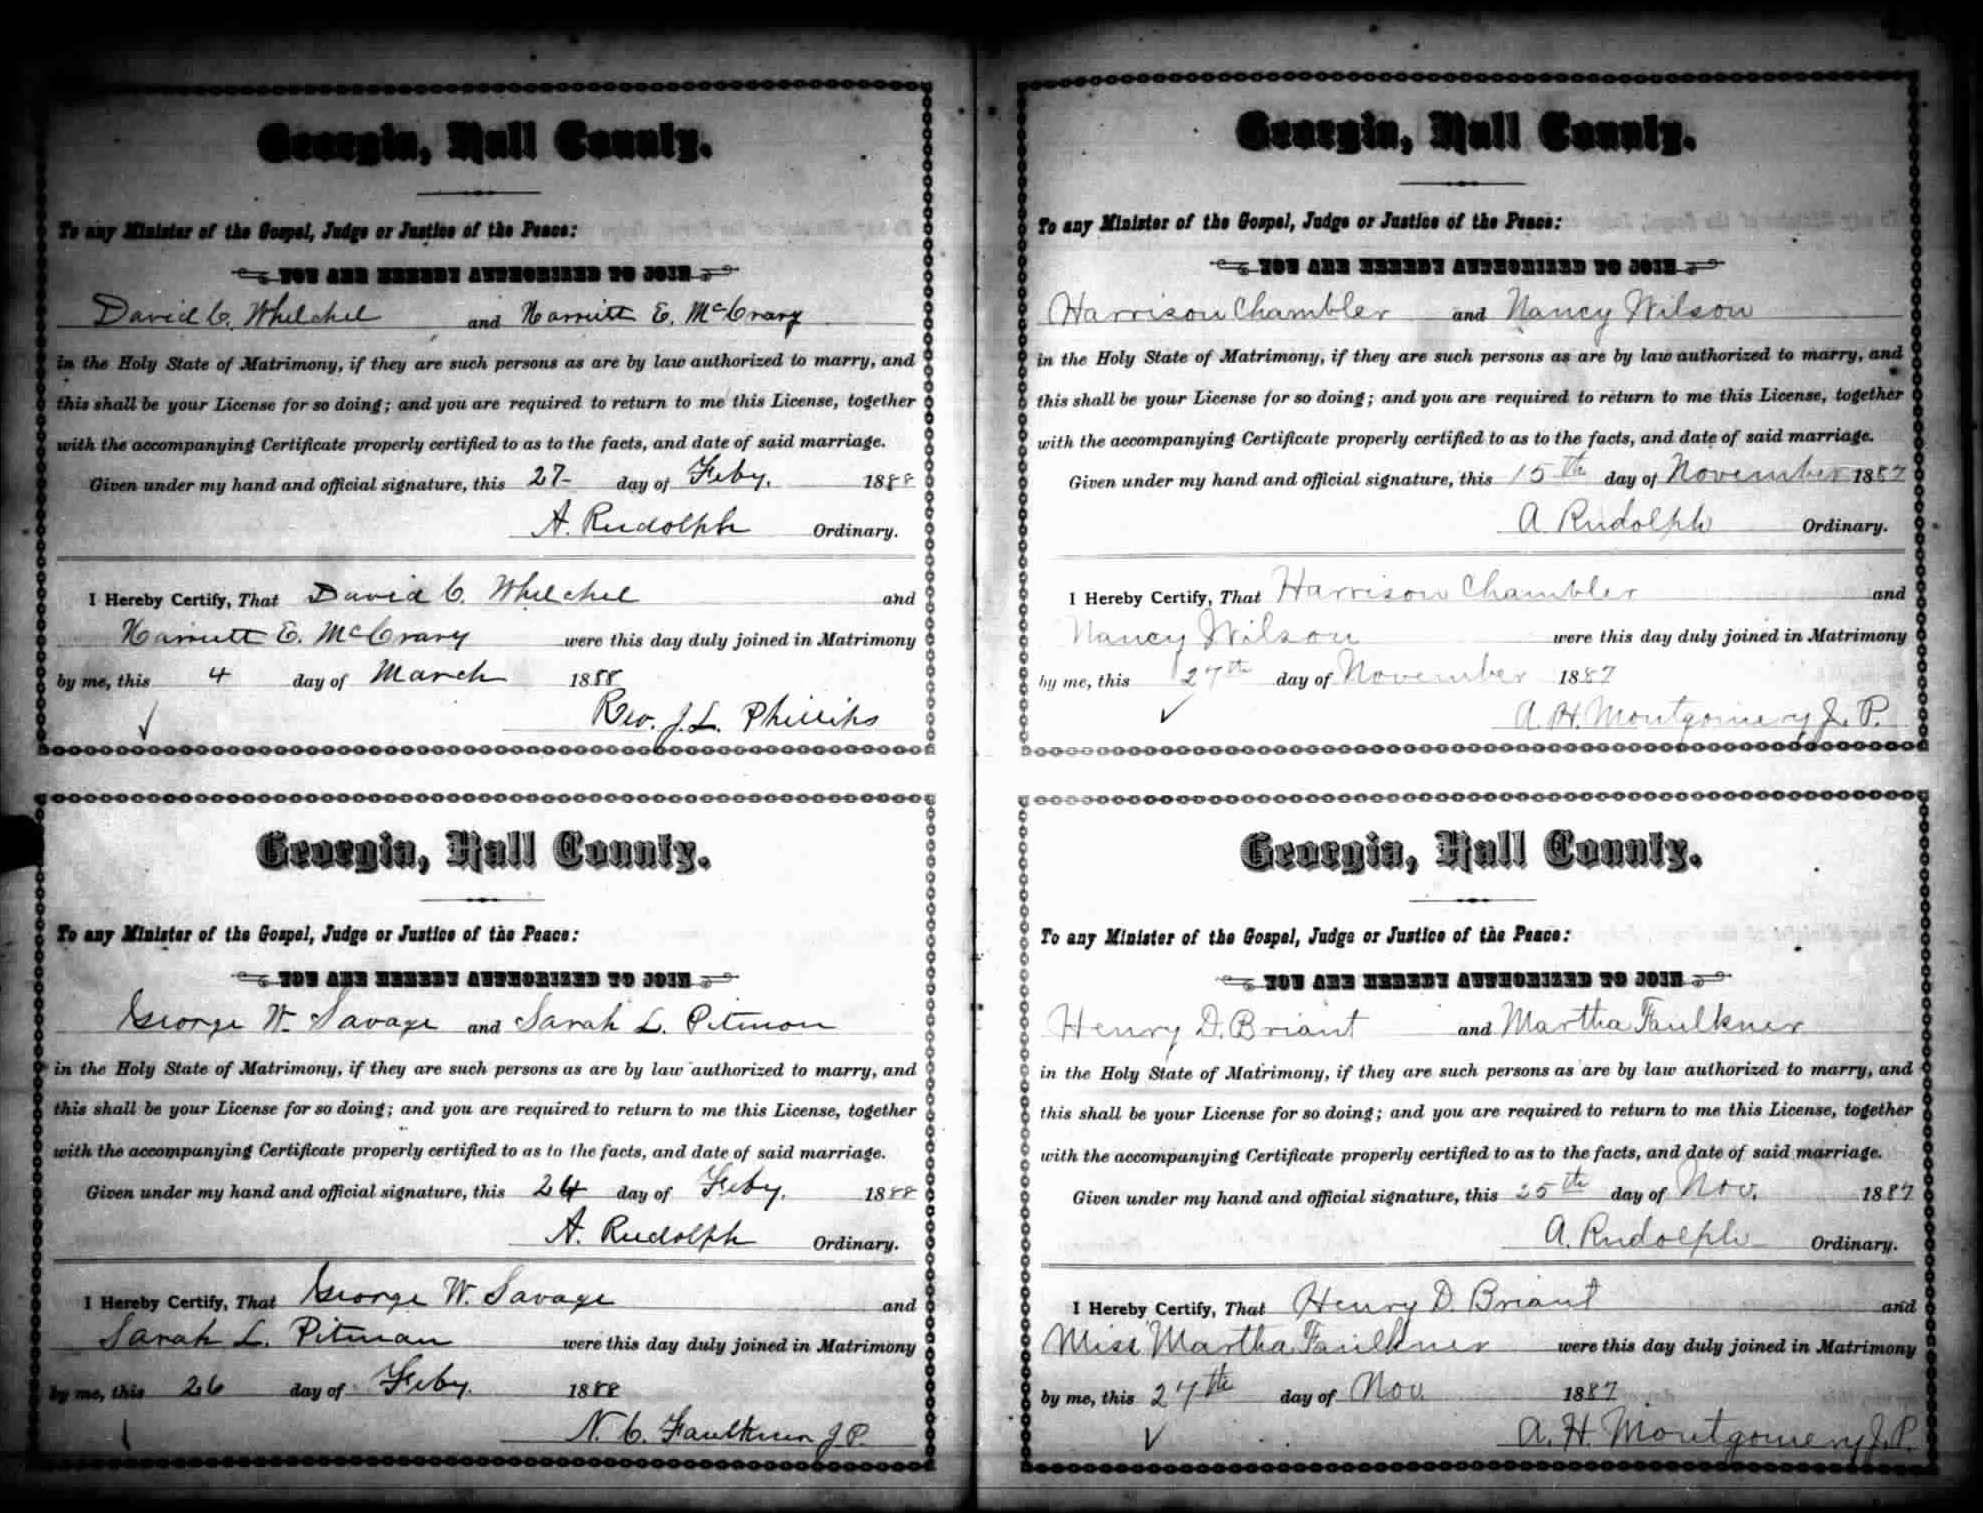 Georgia, Hall County.
To any Minister of the Gospel, Judge or Justice of the Peace:
YOU ARE HEREBY AUTHORIZED TO JOIN
David C. Whelchel and Harriett E. McCrary
in the Holy State of Matrimony, if they are such persons as are by law authorized to marry, and
this shall be your License for so doing; and you are required to return to me this License, together
with the accompanying Certificate properly certified to as to the facts, and date of said marriage.
Given under my hand and official signature, this 27 day of Feby. 1888
A. Rudolph Ordinary.
I Hereby Certify, That David C. Whelchel and
Harriett E. McCrary were this day duly joined in Matrimony
by me, this 4 day of March 1888
Rev. J. L. Phillips
Georgia, Hall County.
To any Minister of the Gospel, Judge or Justice of the Peace:
YOU ARE HEREBY AUTHORIZED TO JOIN
George W. Savage and Sarah L. Pitmon
in the Holy State of Matrimony, if they are such persons as are by law authorized to marry, and
this shall be your License for so doing; and you are required to return to me this License, together
with the accompanying Certificate properly certified to as to the facts, and date of said marriage.
Given under my hand and official signature, this 24 day of Feby. 1888
A. Rudolph Ordinary.
I Hereby Certify, That George W. Savage and
Sarah L. Pitman were this day duly joined in Matrimony
by me, this 26 day of Feby. 1888
N. C. Faulkner J P.
Georgia, Hall County.
To any Minister of the Gospel, Judge or Justice of the Peace:
YOU ARE HEREBY AUTHORIZED TO JOIN
Harrison Chambler and Nancy Wilson
in the Holy State of Matrimony, if they are such persons as are by law authorized to marry, and
this shall be your License for so doing; and you are required to return to me this License, together
with the accompanying Certificate properly certified to as to the facts, and date of said marriage.
Given under my hand and official signature, this 15th day of November 1887
A. Rudolph Ordinary.
I Hereby Certify, That Harrison Chambler and
Nancy Wilson were this day duly joined in Matrimony
by me, this 27th day of November 1887
A. H. Montgomery J. P.
Georgia, Hall County.
To any Minister of the Gospel, Judge or Justice of the Peace:
YOU ARE HEREBY AUTHORIZED TO JOIN
Henry D. Briant and Martha Faulkner
in the Holy State of Matrimony, if they are such persons as are by law authorized to marry, and
this shall be your License for so doing; and you are required to return to me this License, together
with the accompanying Certificate properly certified to as to the facts, and date of said marriage.
Given under my hand and official signature, this 25th day of Nov. 1887
A. Rudolph Ordinary.
I Hereby Certify, That Henry D. Briant and
Miss Martha Faulkner were this day duly joined in Matrimony
by me, this 27th day of Nov. 1887
A. H. Montgomery J. P.